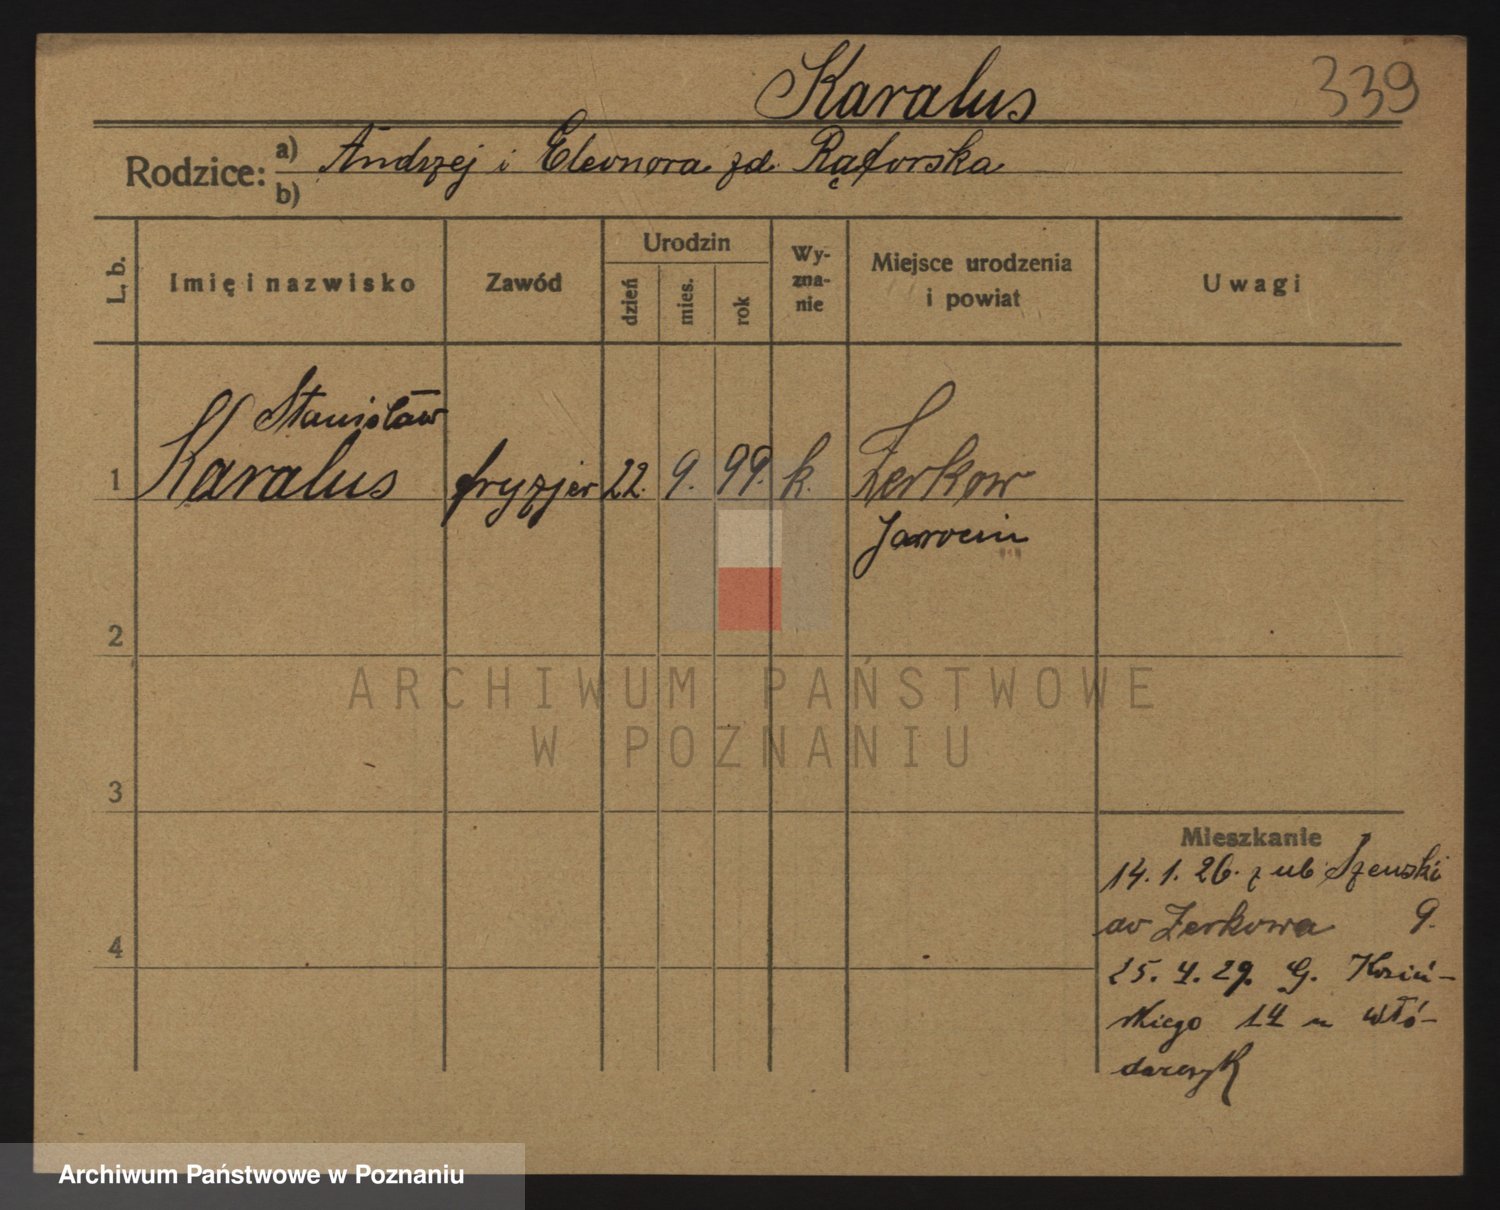 Karalus 339
Rodzice: a) Andrzej i Eleonora zd.
b)
L. b. Imię i nazwisko Zawód Urodzin dzień mies. rok Wyznanie Miejsce urodzenia i powiat Uwagi
Stanisław
1 Karalus fryzjer 22. 9. 99. k. Żerkow
Jarocin
2
ARCHIWUM PAŃSTWOWE
W POZNANIU
3
Mieszkanie
14. 1. 26. z
Żerkowa 9.
4
25. 4. 29. G. Kosiń-
skiego 14 m Włó-
darczyk
Archiwum Państwowe w Poznaniu